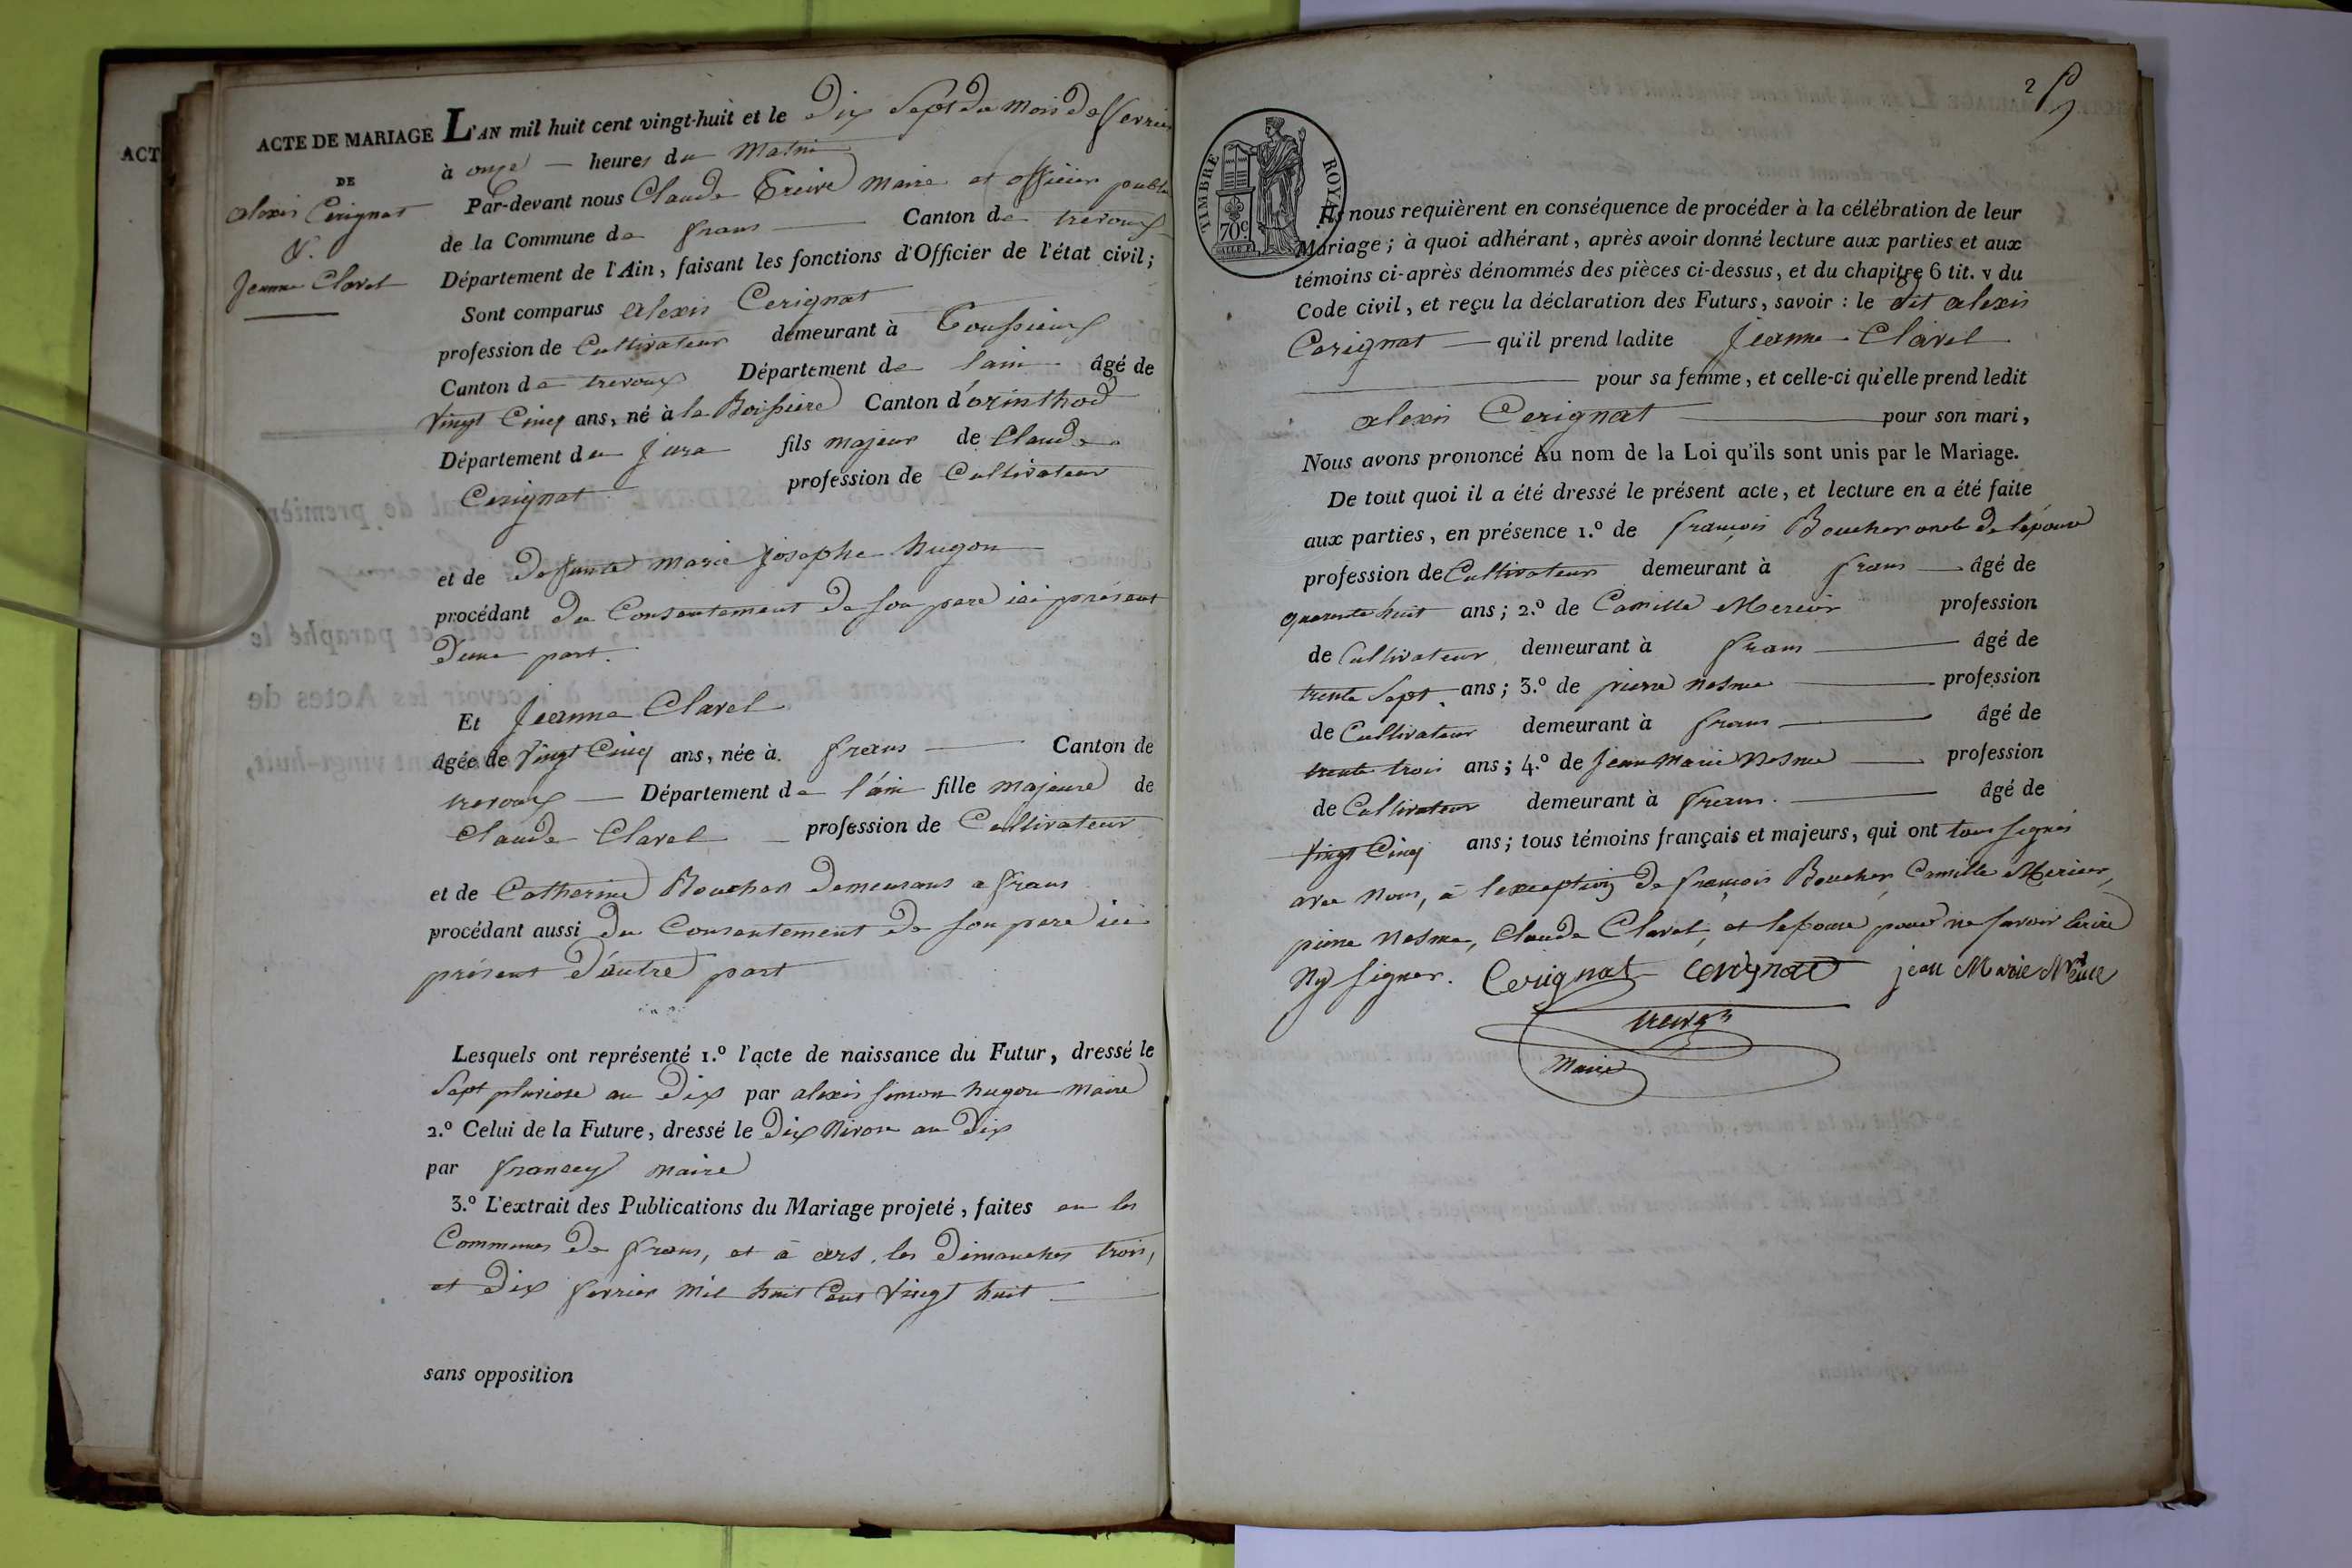 ACT
ACTE DE MARIAGE
DE
alexis Cerignat
&.
Jeanne Clavel
L'AN mil huit cent vingt-huit et le Dix Sept du mois de fevrier
à onze heures du matin
Par-devant nous Claude Treive maire et officier public
de la Commune de frans Canton de trevoux
Département de l'Ain, faisant les fonctions d'Officier de l'état civil;
Sont comparus alexis Cerignat
profession de Cultivateur demeurant à Toussieux
Canton de trevoux Département de lain âgé de
Vingt Cinq ans, né à la Boissiere Canton d'orinthod
Département du jura fils majeur de Claude
Cerignat profession de Cultivateur
et de deffunte marie josephe hugon
procédant du Consentement de son pere ici présent
d'une part.
Et Jeanne Clavel
âgée de Vingt Cinq ans, née à frans Canton de
trevoux Département de l'ain fille majeure de
Claude Clavel profession de Cultivateur
et de Catherine Boucher demeurans a frans
procédant aussi du Consentement de son pere ici
présent d'autre part
Lesquels ont représenté 1.º l'acte de naissance du Futur, dressé le
Sept pluviose an dix par alexis simon hugon maire
2.º Celui de la Future, dressé le dix Nivose an dix
par francey maire
3.º L'extrait des Publications du Mariage projeté, faites en les
Communes de frans, et à ars, les dimanches trois,
et dix fevrier mil huit Cent Vingt huit
sans opposition
2
TIMBRE ROYAL
70c
Ils nous requièrent en conséquence de procéder à la célébration de leur
Mariage; à quoi adhérant, après avoir donné lecture aux parties et aux
témoins ci-après dénommés des pièces ci-dessus, et du chapitre 6 tit. v du
Code civil, et reçu la déclaration des Futurs, savoir : le dit alexis
Cerignat qu'il prend ladite Jeanne Clavel
pour sa femme, et celle-ci qu'elle prend ledit
alexis Cerignat pour son mari,
Nous avons prononcé Au nom de la Loi qu'ils sont unis par le Mariage.
De tout quoi il a été dressé le présent acte, et lecture en a été faite
aux parties, en présence 1.º de françois Boucher oncle de lépouse
profession de Cultivateur demeurant à frans âgé de
quarente huit ans; 2.º de Camille Mercier profession
de Cultivateur demeurant à frans âgé de
trente Sept ans; 3.º de pierre nesme profession
de Cultivateur demeurant à frans âgé de
trente trois ans; 4.º de Jean Marie Nesme profession
de Cultivateur demeurant à frans. âgé de
Vingt Cinq ans; tous témoins français et majeurs, qui ont tous signés
avec nous, à l'exception de françois Boucher, Camille Mercier,
pierre Nesme, Claude Clavel, et lepouse pour ne savoir Ecrire
Ny signer. Cerignat Cerignat jean Marie Nesme
treive
Maire